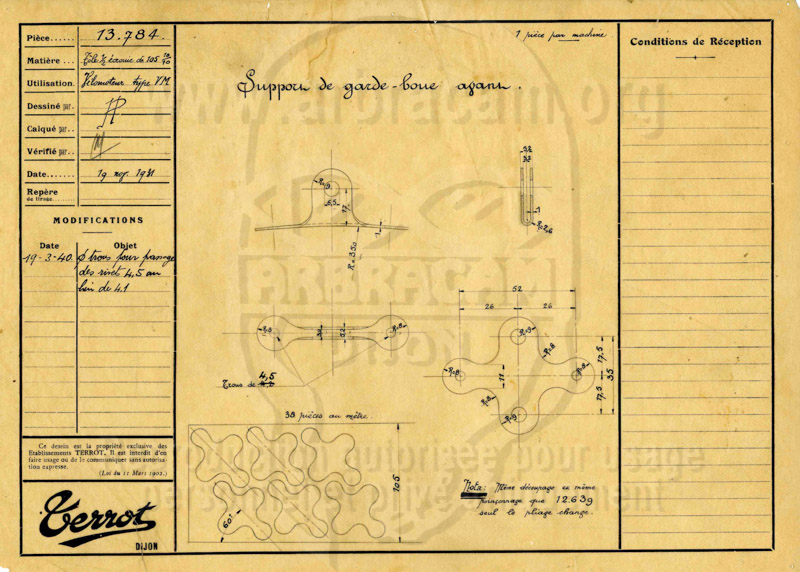 Pièce...... 13.784.
Matière... Tôle décapée de 105 10/10
Utilisation. Vélomoteur type VM
Dessiné par..
Calqué par..
Vérifié par..
Date........ 19 nov 1931
Repère
de tirage........
MODIFICATIONS
Date Objet
19-3-40. Ø trous pour passage
des rivets 4,5 au
lieu de 4.1
Ce dessin est la propriété exclusive des
Etablissements TERROT. Il est interdit d'en
faire usage ou de le communiquer sans autorisa-
tion expresse.
(Loi du 11 Mars 1902.)
Terrot
DIJON
1 pièce par machine.
Support de garde-boue avant.
R=9
6,5
17
1
R=350
52
32
1
R=2,6
R=9
R=8
Trous de 4,5
38 pièces au mètre.
60°
105
52
26 26
R=9
R=8
R=8
R=8
R=8
R=9
11
17,5
17,5
35
Nota: Même découpage et même
poinçonnage que 12.639
seul le pliage change.
Conditions de Réception
www.arbracam.org
ARBRACAM